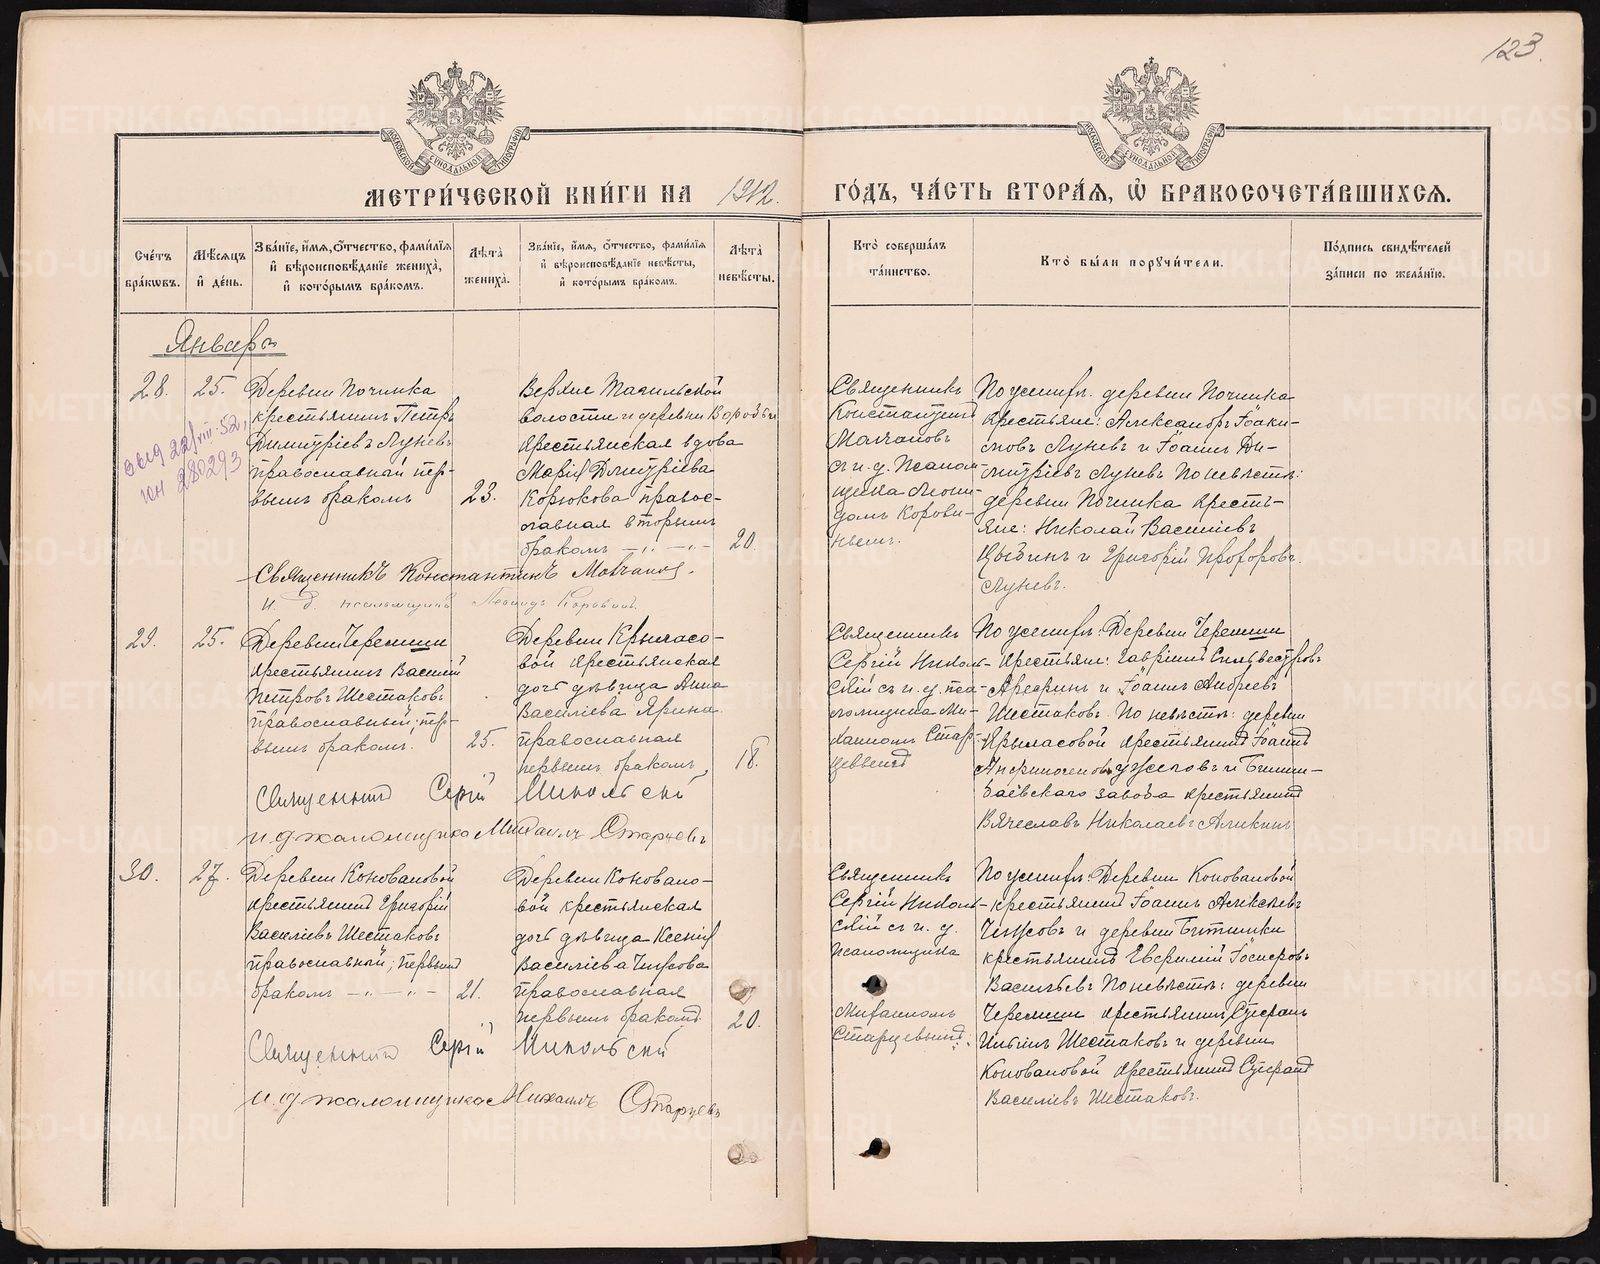 123.
МОСКОВСКОЙ СѴНОДАЛЬНОЙ ТИПОГРАФІИ
МОСКОВСКОЙ СѴНОДАЛЬНОЙ ТИПОГРАФІИ
МЕТРИ́ЧЕСКОЙ КНИ́ГИ НА 1912.
ГО́ДЪ, ЧА́СТЬ ВТОРА́Я, Ѽ БРАКОСОЧЕТА́ВШИХСЯ.
Сче́тъ бра́ковъ.
Мѣ́сяцъ и҆ де́нь.
Зва́нїе, и҆́мя, ѻ҆́тчество, фами́лїя и҆ вѣроисповѣ́данїе жениха̀, и҆ кото́рымъ бра́комъ.
Лѣ́та̀ жениха̀.
Зва́нїе, и҆́мя, ѻ҆́тчество, фами́лїя и҆ вѣроисповѣ́данїе невѣ́сты, и҆ кото́рымъ бра́комъ.
Лѣ́та̀ невѣ́сты.
Кто̀ соверша́лъ та́инство.
Кто̀ бы́ли порꙋчи́тели.
По́дпись свидѣ́телей за́писи по жела́нїю.
Январь
28.
25.
22/VIII-52,
280293
Деревни Починка
крестьянинъ Петръ
Димитріевъ Луневъ
православный пер-
вымъ бракомъ
23.
Верхне Тагильской
волости и деревни
крестьянская вдова
Марія Дмитріева
Корюкова правос-
лавная вторымъ
бракомъ
20.
Священникъ
Константинъ
Молчановъ
съ и. д. псалом-
щика Леони-
домъ Корови-
нымъ.
По женихѣ: деревни Починка
крестьяне: Александръ Іоаки-
мовъ Луневъ и Іоаннъ Ди-
митріевъ Луневъ По невѣстѣ:
деревни Починка кресть-
яне: Николай Василіевъ
и Григорій Прохоровъ
Луневъ.
Священникъ Константинъ Молчановъ.
и. д. псаломщика Леонидъ Коровинъ
29.
25.
Деревни Черемши
крестьянинъ Василій
Петровъ Шестаковъ
православный; пер-
вымъ бракомъ.
25.
Деревни Крыласо-
вой крестьянская
дочь дѣвица Анна
Василіева Ярина
православная
первымъ бракомъ,
18.
Священникъ
Сергій Николь-
скій съ и. д. пса-
ломщика Ми-
хаиломъ Стар-
цевымъ
По женихѣ: Деревни Черемши
крестьяне: Гавріилъ Сильвестровъ
и Іоаннъ Андреевъ
Шестаковъ. По невѣстѣ: деревни
Крыласовой крестьянинъ Іоаннъ
и Билим-
баевскаго завода крестьянинъ
Вячеславъ Николаевъ Аликинъ
Священникъ Сергій Никольскій
и д псаломщика Михаилъ Старцевъ
30.
27.
Деревни Коноваловой
крестьянинъ Григорій
Василіевъ Шестаковъ
православный; первымъ
бракомъ
21.
Деревни Конова­ло-
вой крестьянская
дочь дѣвица Ксенія
Василіева Чирсова
православная
первымъ бракомъ.
20.
Священникъ
Сергій Николь-
скій съ и. д.
псаломщика
Михаиломъ
Старцевымъ.
По женихѣ: Деревни Коноваловой
крестьянинъ Іоаннъ Алексѣевъ
Чирсовъ и деревни Битимки
крестьянинъ Евфимій
Васильевъ По невѣстѣ: деревни
Черемши крестьянинъ Стефанъ
Шестаковъ и деревни
Коноваловой крестьянинъ Стефанъ
Василіевъ Шестаковъ.
Священникъ Сергій Никольскій
и д псаломщика Михаилъ Старцевъ
METRIKI.GASO-URAL.RU